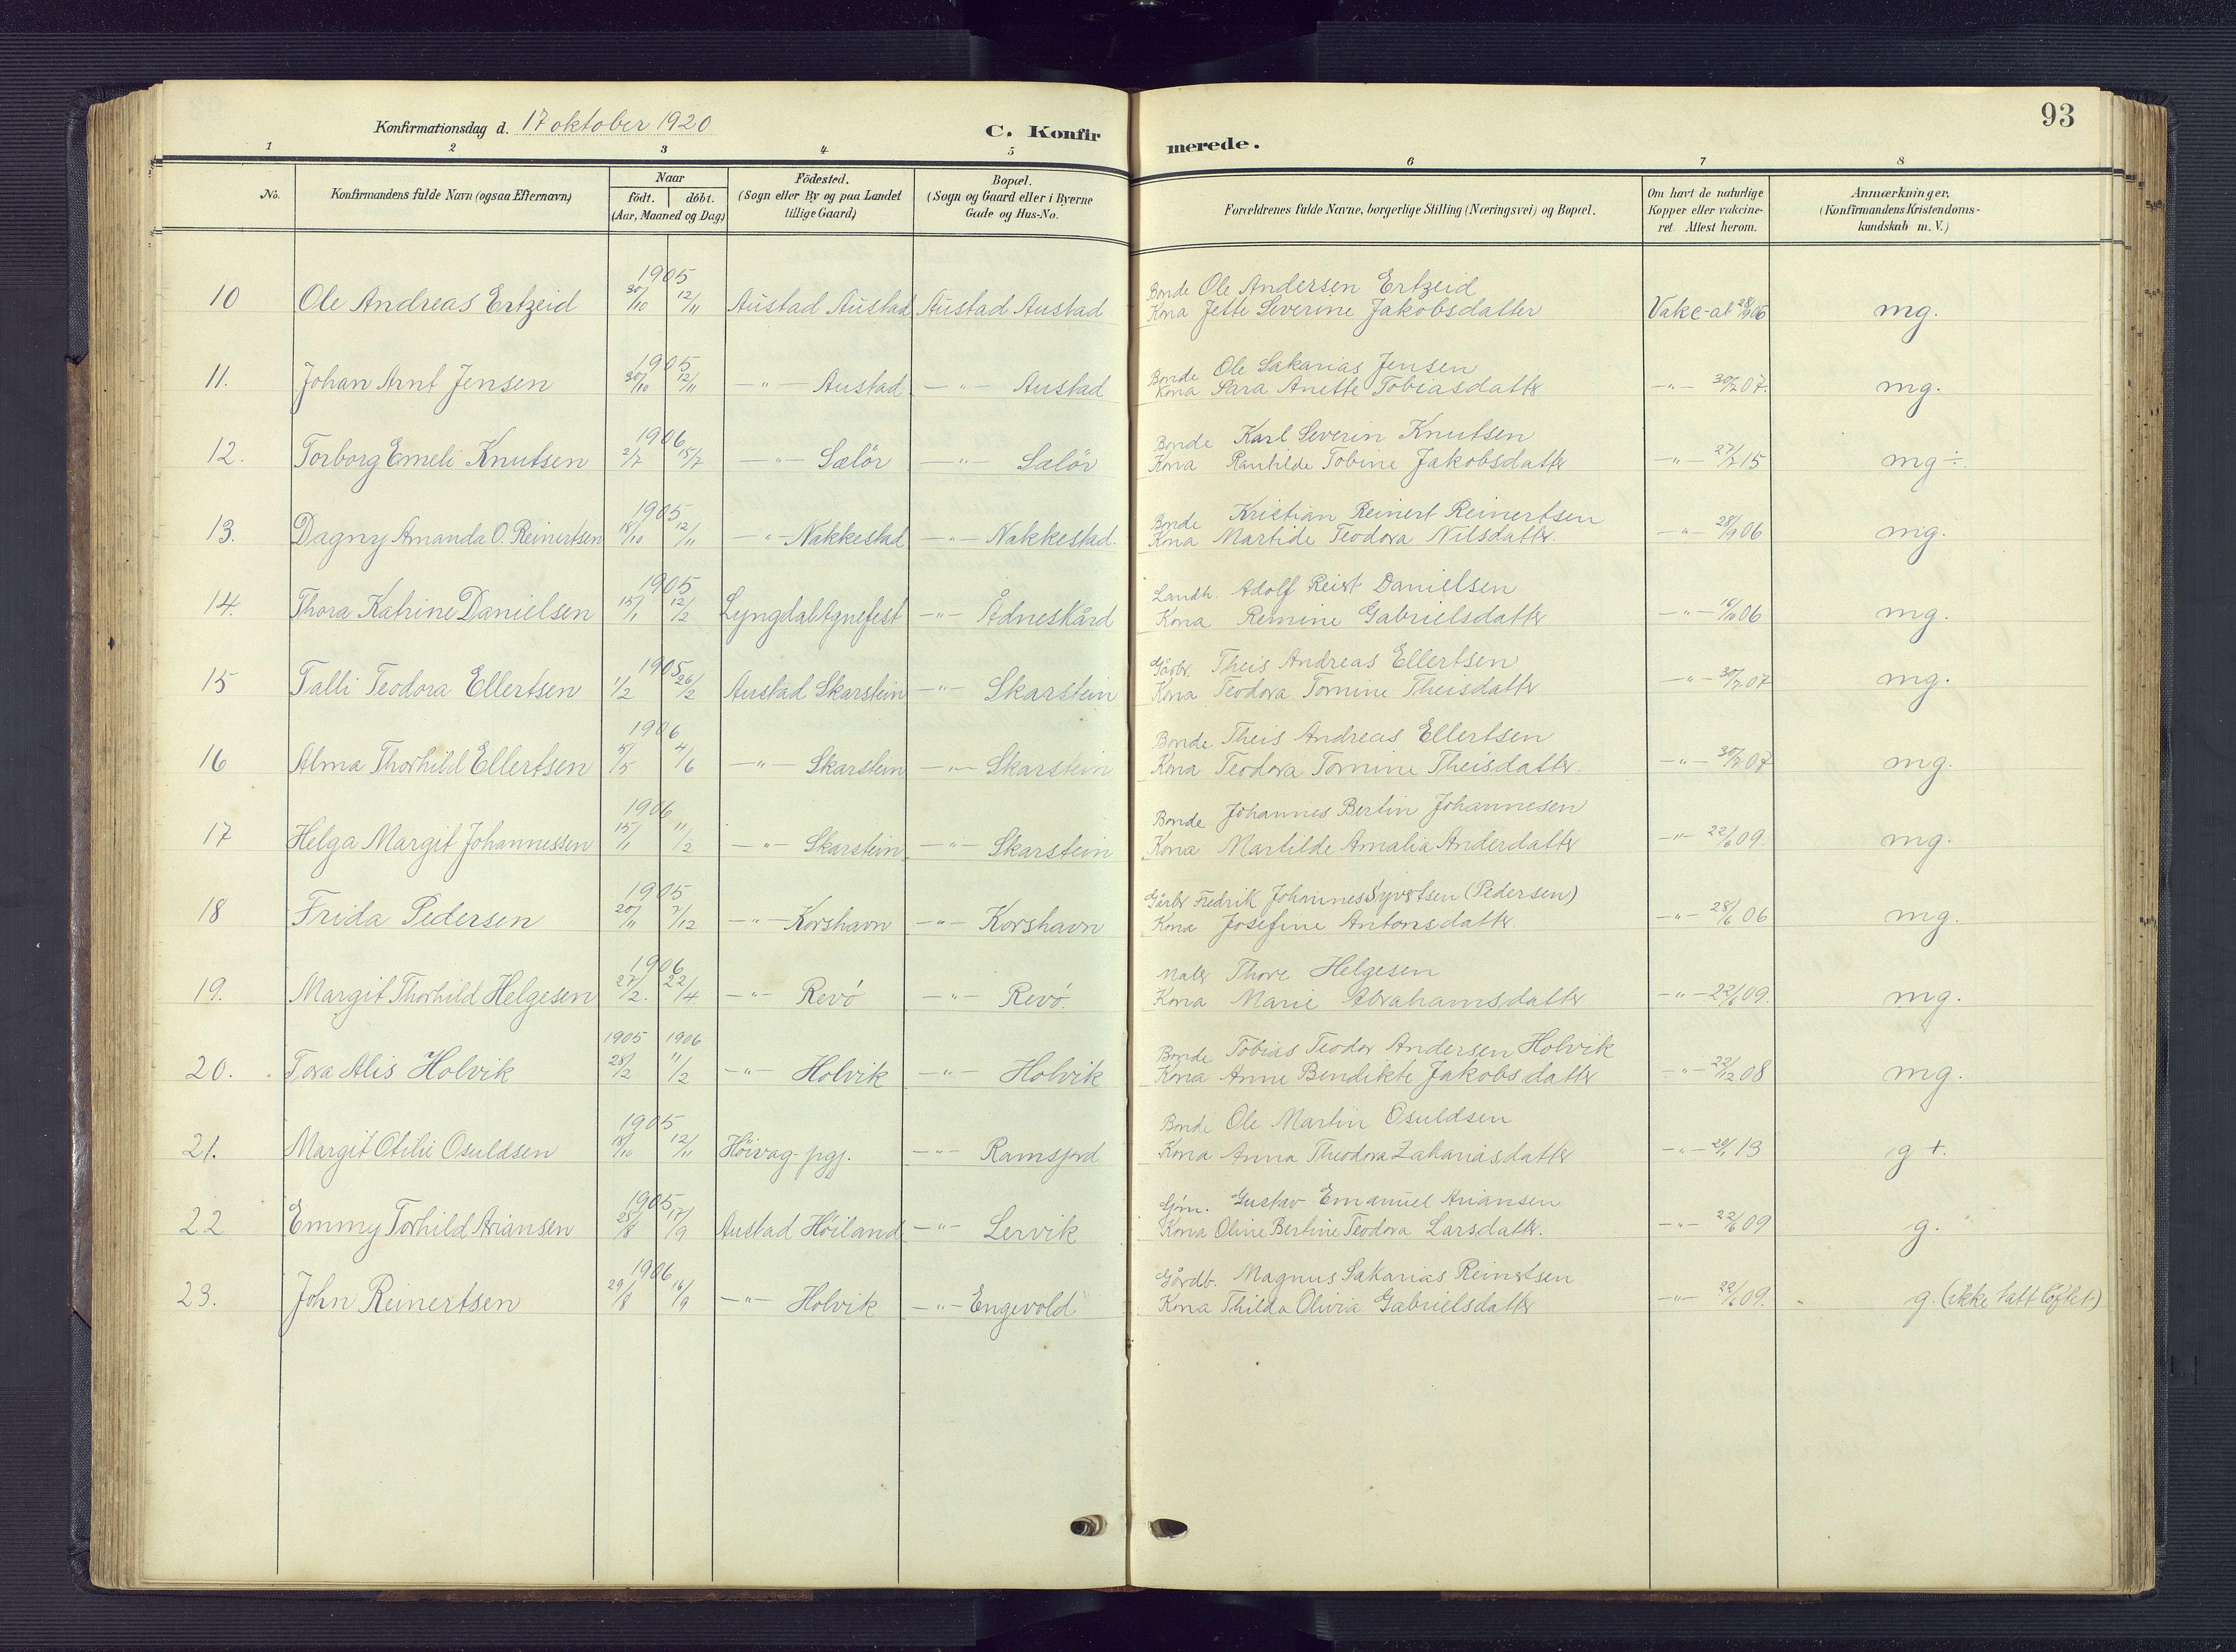 93
Konfirmationsdag d. 17 oktober 1920
C. Konfir
merede.
1 2 3 4 5 6 7 8
No. Konfirmandens fulde Navn (ogsaa Efternavn) Naar födt. döbt. (Aar, Maaned og Dag) Födested. (Sogn eller By og paa Landet tillige Gaard) Bopæl. (Sogn og Gaard eller i Byerne Gade og Hus-No. Forældrenes fulde Navne, borgerlige Stilling (Næringsvei) og Bopæl. Om havt de naturlige Kopper eller vakcineret. Attest herom. Anmærkninger, (Konfirmandens Kristendomskundskab m. V.)
1905
Bonde Ole Andersen Ertzeid
10 Ole Andreas Ertzeid 30/10 12/11 Austad Austad Austad Austad Kona Jette Severine Jakobsdatter Vakc-at 28/9 06 mg.
1905
Bonde Ole Sakarias Jensen
11. Johan Arnt Jensen 30/10 12/11 —"— Austad —"— Austad Kona Sara Anette Tobiasdatter —"— 30/7 07. mg.
1906
Bonde Karl Severin Knutsen
12. Torborg Emeli Knutsen 2/7 15/7 —"— Sælör —"— Sælör Kona Rantilde Tobine Jakobsdatter —"— 27/7 15 mg ÷.
1905
Bonde Kristian Reinert Reinertsen
13. Dagny Amanda O. Reinertsen 18/10 12/11 —"— Nakkestad —"— Nakkestad. Kona Martide Teodora Nilsdatter. —"— 28/9 06 mg.
1905
Landh. Adolf Reist Danielsen
14. Thora Katrine Danielsen 15/1 12/2 Lyngdal Agnefest —"— Ådneskård Kona Remine Gabrielsdatter —"— 16/10 06 mg.
1905
Gårbr. Theis Andreas Ellertsen
15 Talli Teodora Ellertsen 1/2 26/2 Austad Skarstein —"— Skarstein Kona Teodora Tomine Theisdatter —"— 30/7 07 mg.
1906
Bonde Theis Andreas Ellertsen
16 Alma Thorhild Ellertsen 5/5 4/6 —"— Skarstein —"— Skarstein Kona Teodora Tomine Theisdatter. —"— 30/7 07 mg.
1906
Bonde Johannes Bertin Johannesen
17 Helga Margit Johannessen 15/1 11/2 —"— Skarstein —"— Skarstein Kona Martilde Amalia Anderdatter —"— 22/6 09. mg.
1905
Gårbr Fredrik Johannes Syvertsen (Pedersen)
18 Frida Pedersen 20/11 7/12 —"— Korshavn —"— Korshavn Kona Josefine Antonsdatter. —"— 28/6 06 mg.
1906
Maler Thore Helgesen
19. Margit Thorhild Helgesen 27/2. 22/4 —"— Revö —"— Revö. Kona Marie Abrahamsdatter —"— 22/6 09. mg.
1905 1906
Bonde Tobias Teodor Andersen Holvik
20. Tora Alis Holvik 28/2 11/2 —"— Holvik —"— Holvik Kona Anne Bendikte Jakobsdatter —"— 22/12 08 mg.
1905
Bonde Ole Martin Osuldsen
21. Margit Otilie Osuldsen 18/10 12/11 Höivag pgj. —"— Ramsjord Kona Anna Theodora Zakariasdatter —"— 13 g +.
1905
Gustav Emanuel Ariansen
22 Emmy Torhild Ariansen 25/8 17/9 Austad Höiland —"— Lervik Kona Oline Bertine Teodora Larsdatter. —"— 22/6 09 g.
1906
Gårdb. Magnus Sakarias Reinertsen
23. John Reinertsen 29/8 16/9 —"— Holvik —"— Engevold Kona Thilda Olivia Gabrielsdatter —"— 22/6 09. g. (ikke tatt löftet)